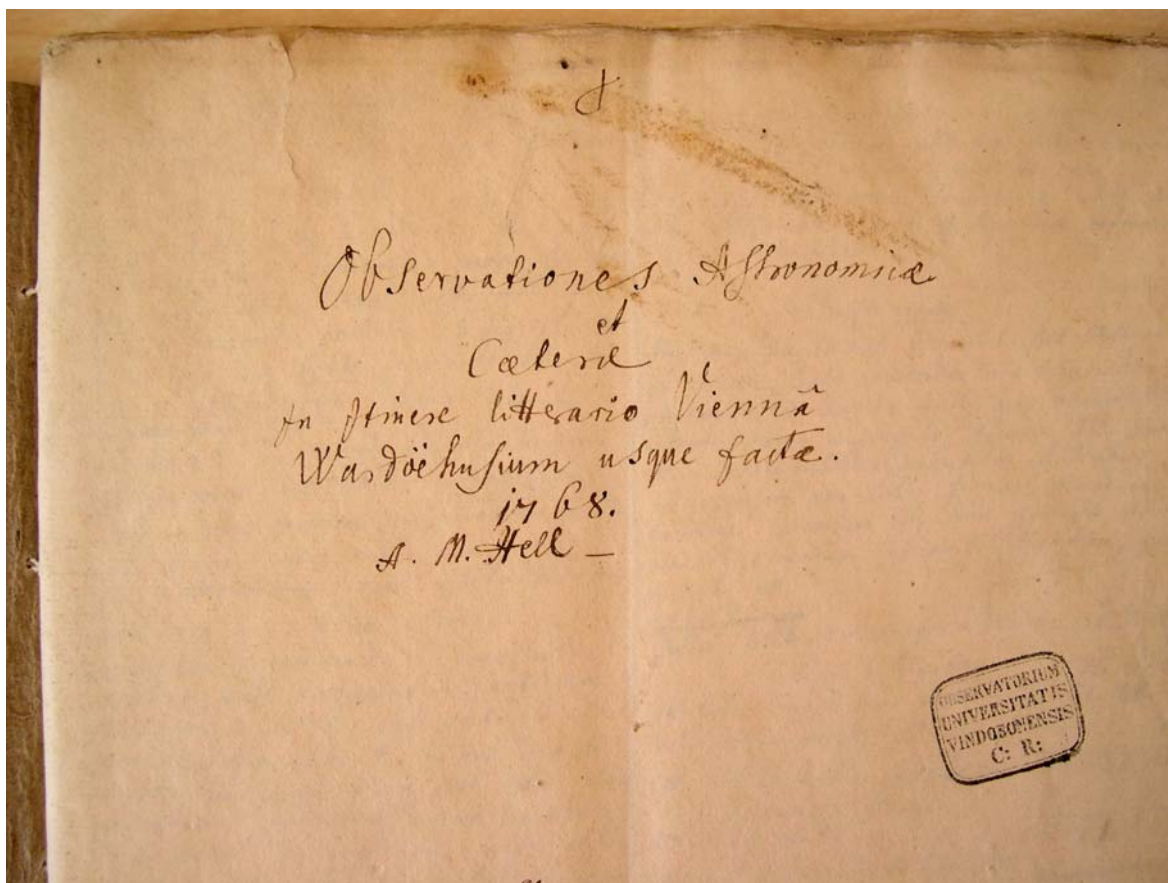 Observationes Astronomicæ
et
Cæteræ
In Itinere litterario Viennâ
Wardöehusium usque factæ.
1768.
A. M. Hell —
OBSERVATORIUM
UNIVERSITATIS
VINDOBONENSIS
C: R: